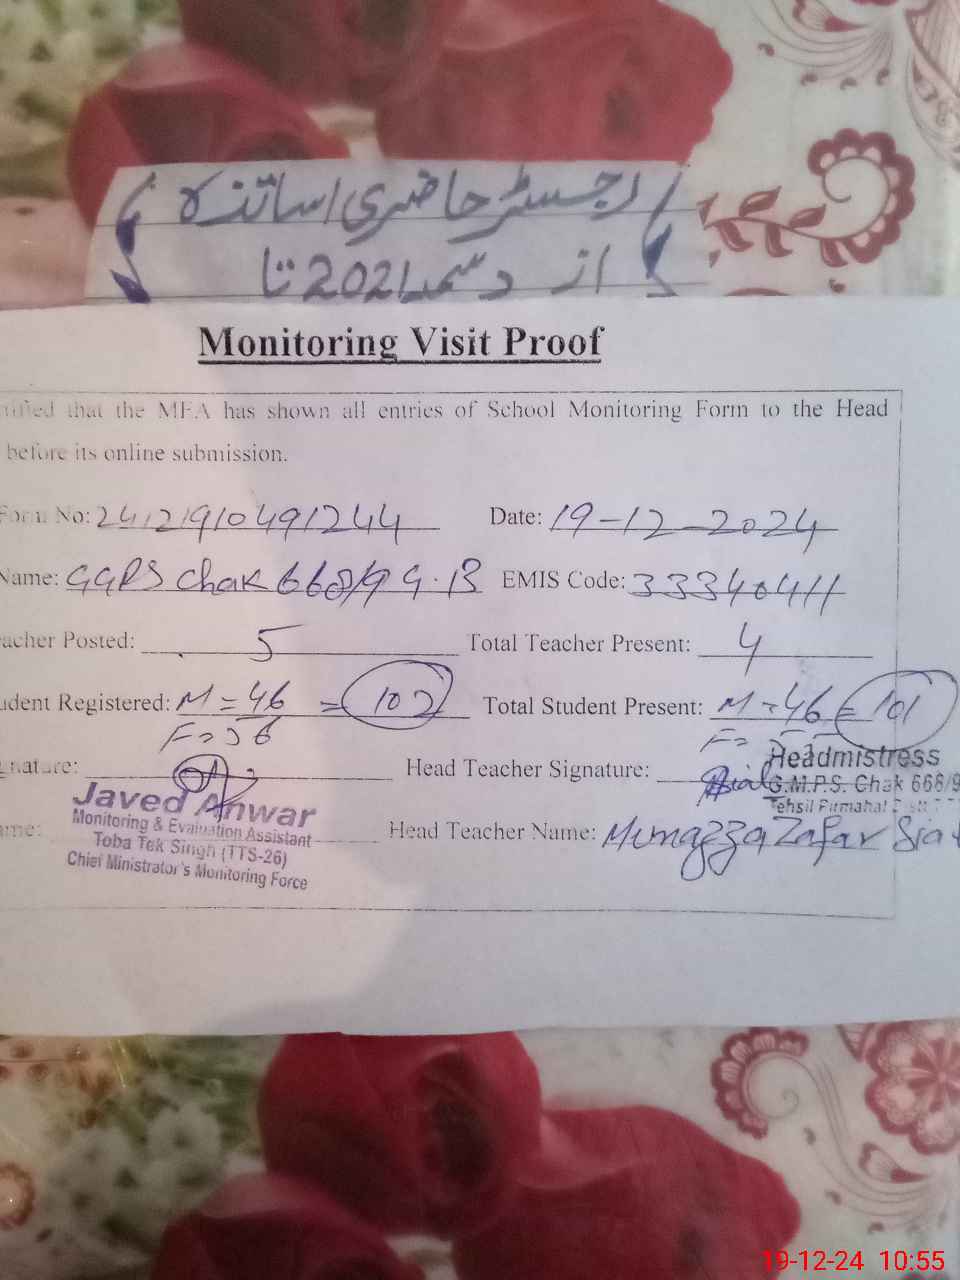 رجسٹر حاضری اساتذہ
از دسمبر 2021 تا
Monitoring Visit Proof
that the MEA has shown all entries of School Monitoring Form to the Head
before its online submission.
Form No: 24121910491244 Date: 19-12-2024
Name: GGPS Chak 668/9 G.B EMIS Code: 33340411
acher Posted: 5 Total Teacher Present: 4
udent Registered: M = 46 = 102 Total Student Present: M = 46 = 101
F = 56 F =
gnature: Head Teacher Signature:
Headmistress
G.M.P.S. Chak 668/9
Tehsil Pirmahal
Javed Anwar
Monitoring & Evaluation Assistant
Toba Tek Singh (TTS-26)
Chief Minister's Monitoring Force
ame: Head Teacher Name: Munazza Zafar
19-12-24 10:55